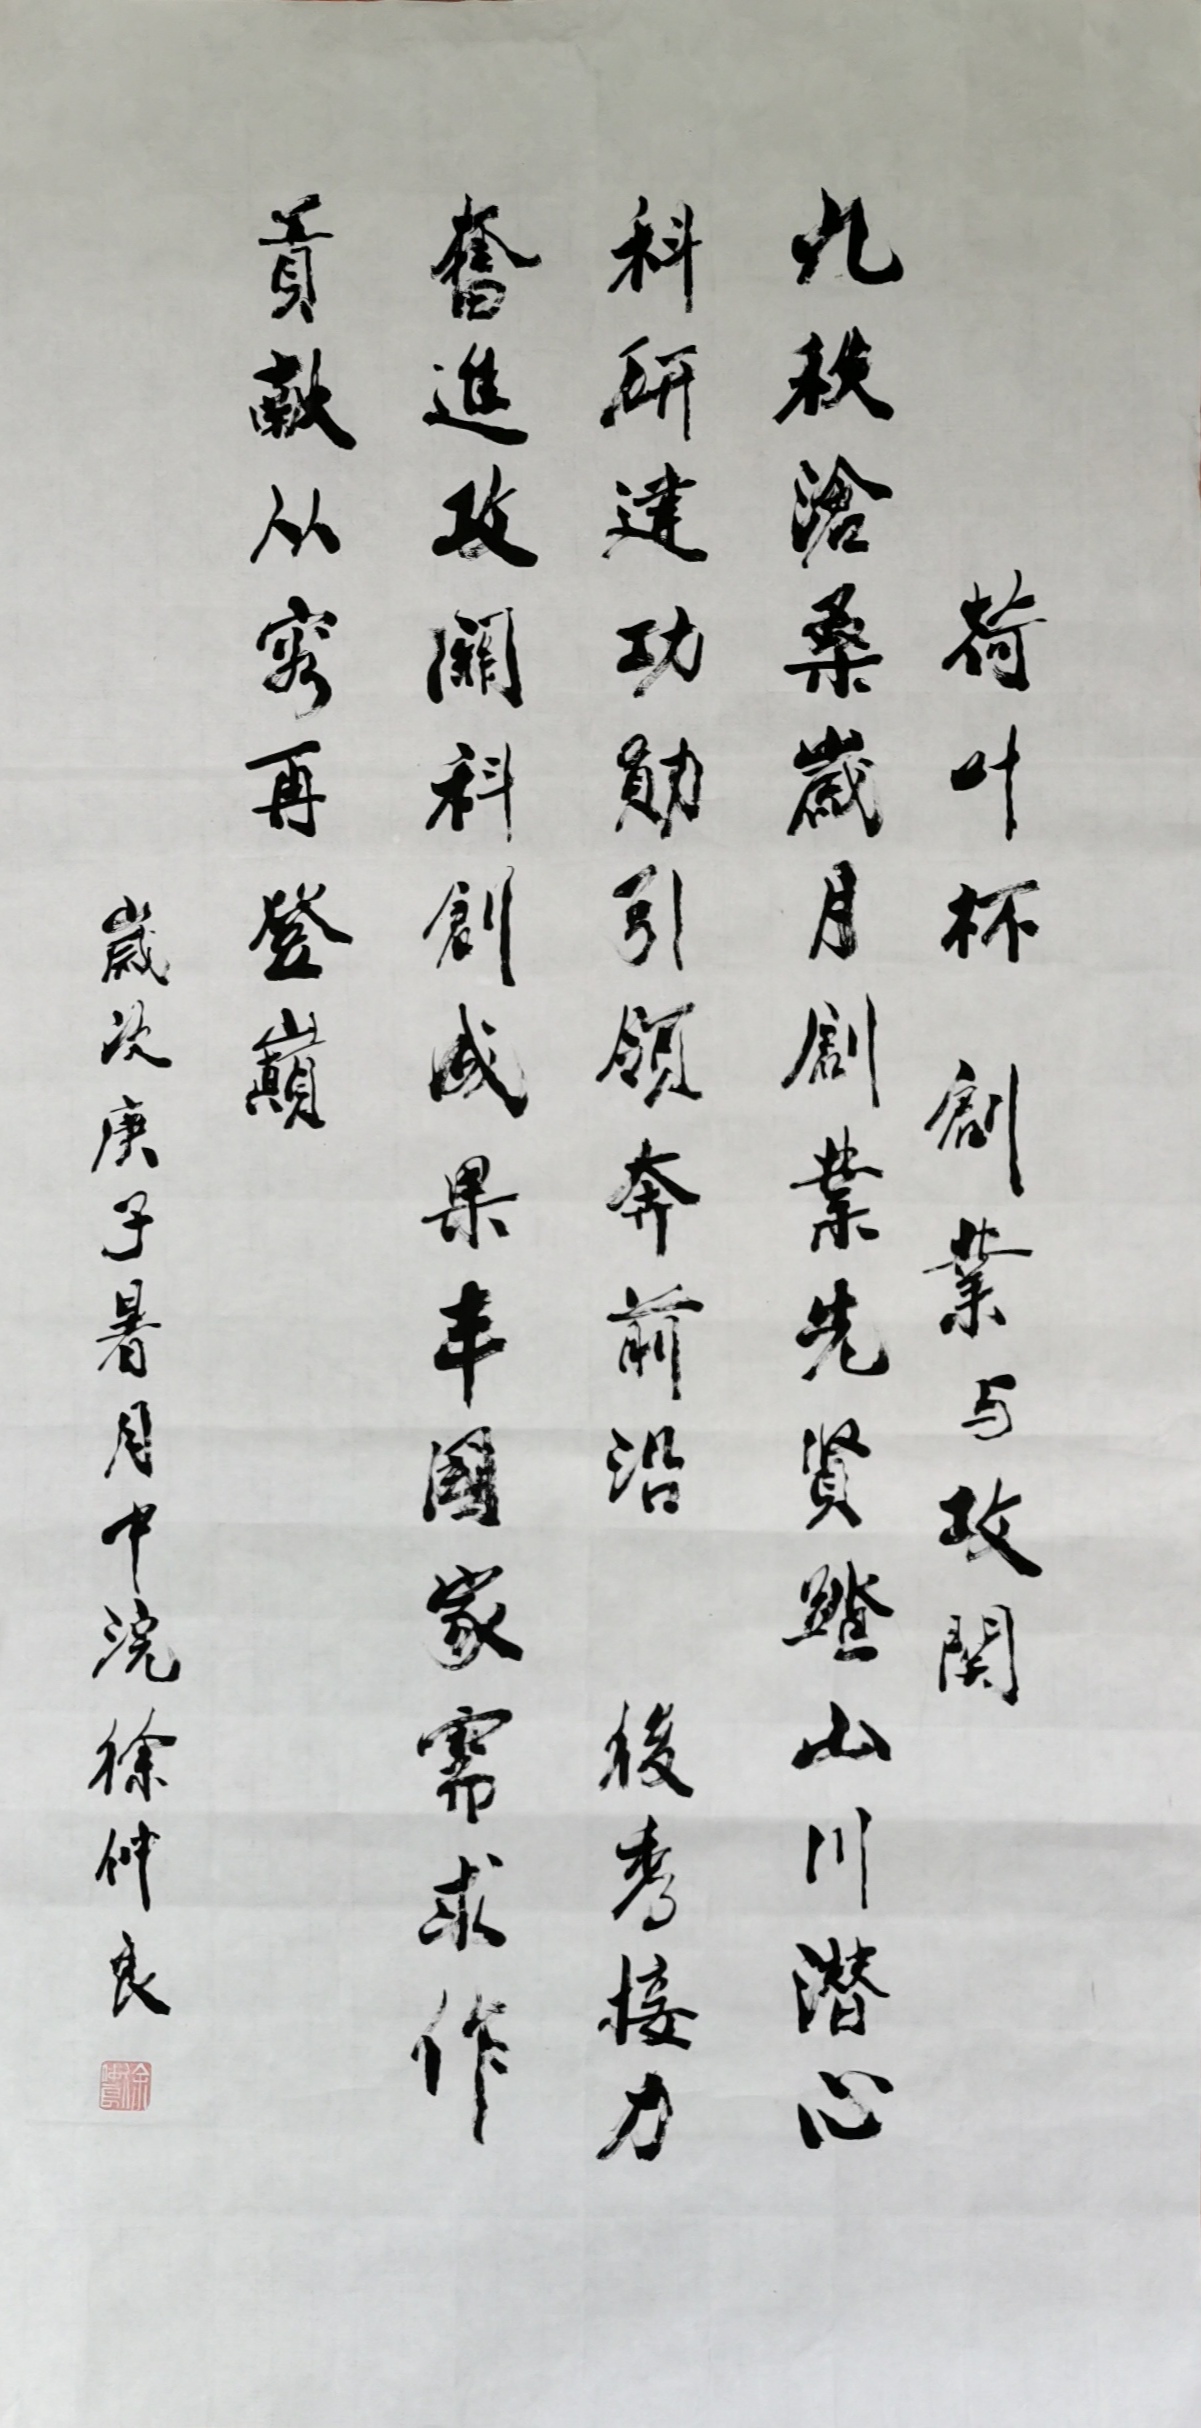 荷叶杯 創業与攻関
九秩滄桑歲月創業先贤踏山川潜心
科研建功勛引領奔前沿 後秀接力
奮進攻關科創成果丰國家需求作
貢献从容再登巔
歲次庚子暑月中浣徐仲良